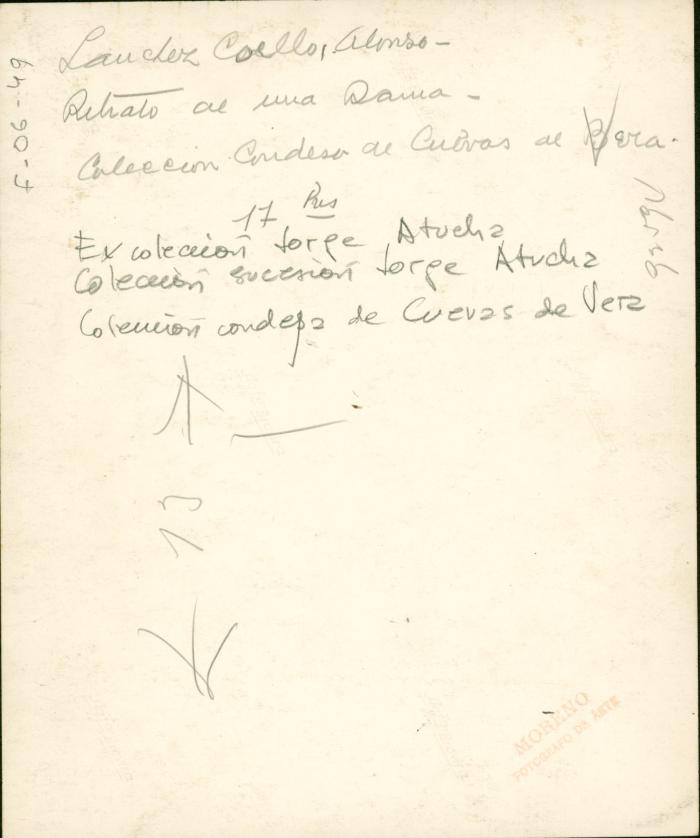 Sanchez Coello, Alonso-
Retrato de una Dama -
Coleccion Condesa de Cuevas de Vera.
17
Ex colección Jorge Atucha
Colección sucesión Jorge Atucha
Colección condesa de Cuevas de Vera
13
F-06-49
MORENO
FOTOGRAFO DE ARTE